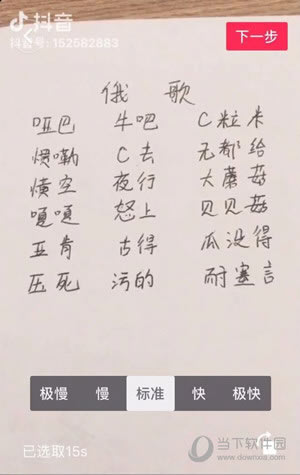 抖音
抖音号:152582883
下一步
俄 歌
哑巴 牛吧 C粒米
愤嘞 C去 无都给
横空 夜行 大蘑菇
嘎嘎 怒上 贝贝菇
亚肯 古得 瓜没得
压死 污的 耐塞言
极慢 慢 标准 快 极快
已选取15s
当下软件园
www.downxia.com